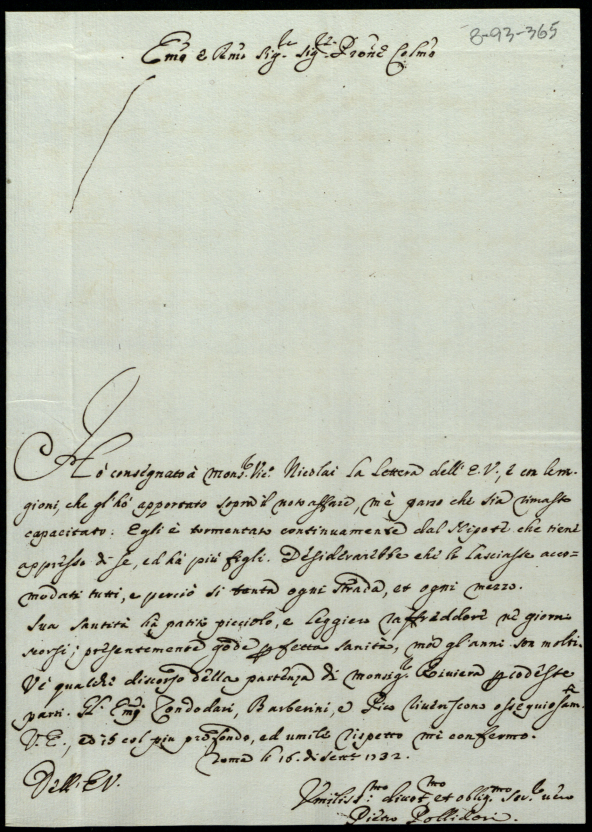 8-93-365
Emõ e Remõ Sig.re Sig.r Prone Colmõ
Hò consegnato à mons.r Vic.o Nicolai la lettera dell' E.V., e con le ra-
gioni, che gl'hò apportato sopra il noto affare, m'è parso che sia rimasto
capacitato. Egli è tormentato continuamente dal Nipote che tiene
appresso di se, ed hà più figli. Desiderarebbe che li lasciasse acco-
modati tutti, e perciò si tenta ogni strada, et ogni mezzo.
Sua Santità hà patito picciolo, e leggiero raffreddore nè giorni
scorsi; presentemente gode pfetta sanità, mà gl'anni son molti.
V'è qualche discorso della partenza di monsig.r Riviera p codeste
parti. Gl' Emi Zondodari, Barberini, e Pico riveriscono ossequiosam.te
V.E., ed io col più profondo, ed umile rispetto mi confermo.
Roma li 16. di Sett. 1732.
Dell' E.V.
Vmiliss.mo divot.mo et oblig.mo Ser.re vero
Pietro Pollidori.